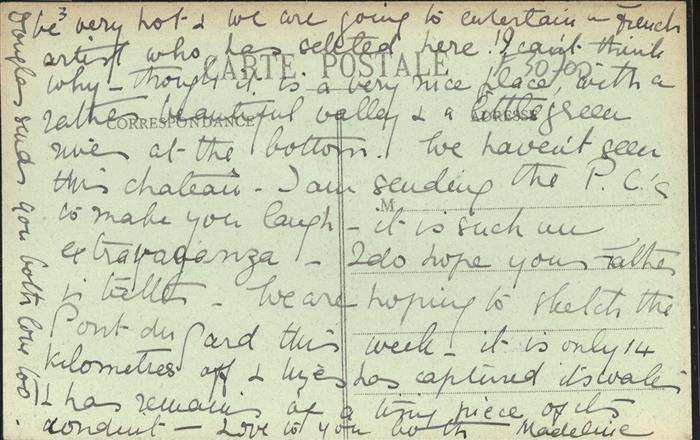 3
be very hot & we are going to entertain a French
artist who has seleted here! I can't think
CARTE POSTALE
why - though it is a very nice place, with a
rather beautiful valley & a little green
CORRESPONDANCE
ADRESSE
river at the bottom. We haven't seen
this chateau - I am sending the P.C.'s
M
to make you laugh - it is such an
extravaganza - I do hope your Father
is better - We are hoping to sketch the
Pont du Gard this week - it is only 14
kilometres off & has captured its
& has remains of a tiny piece of its
conduit - Love to you both Madeline
Douglas sends you both love too.